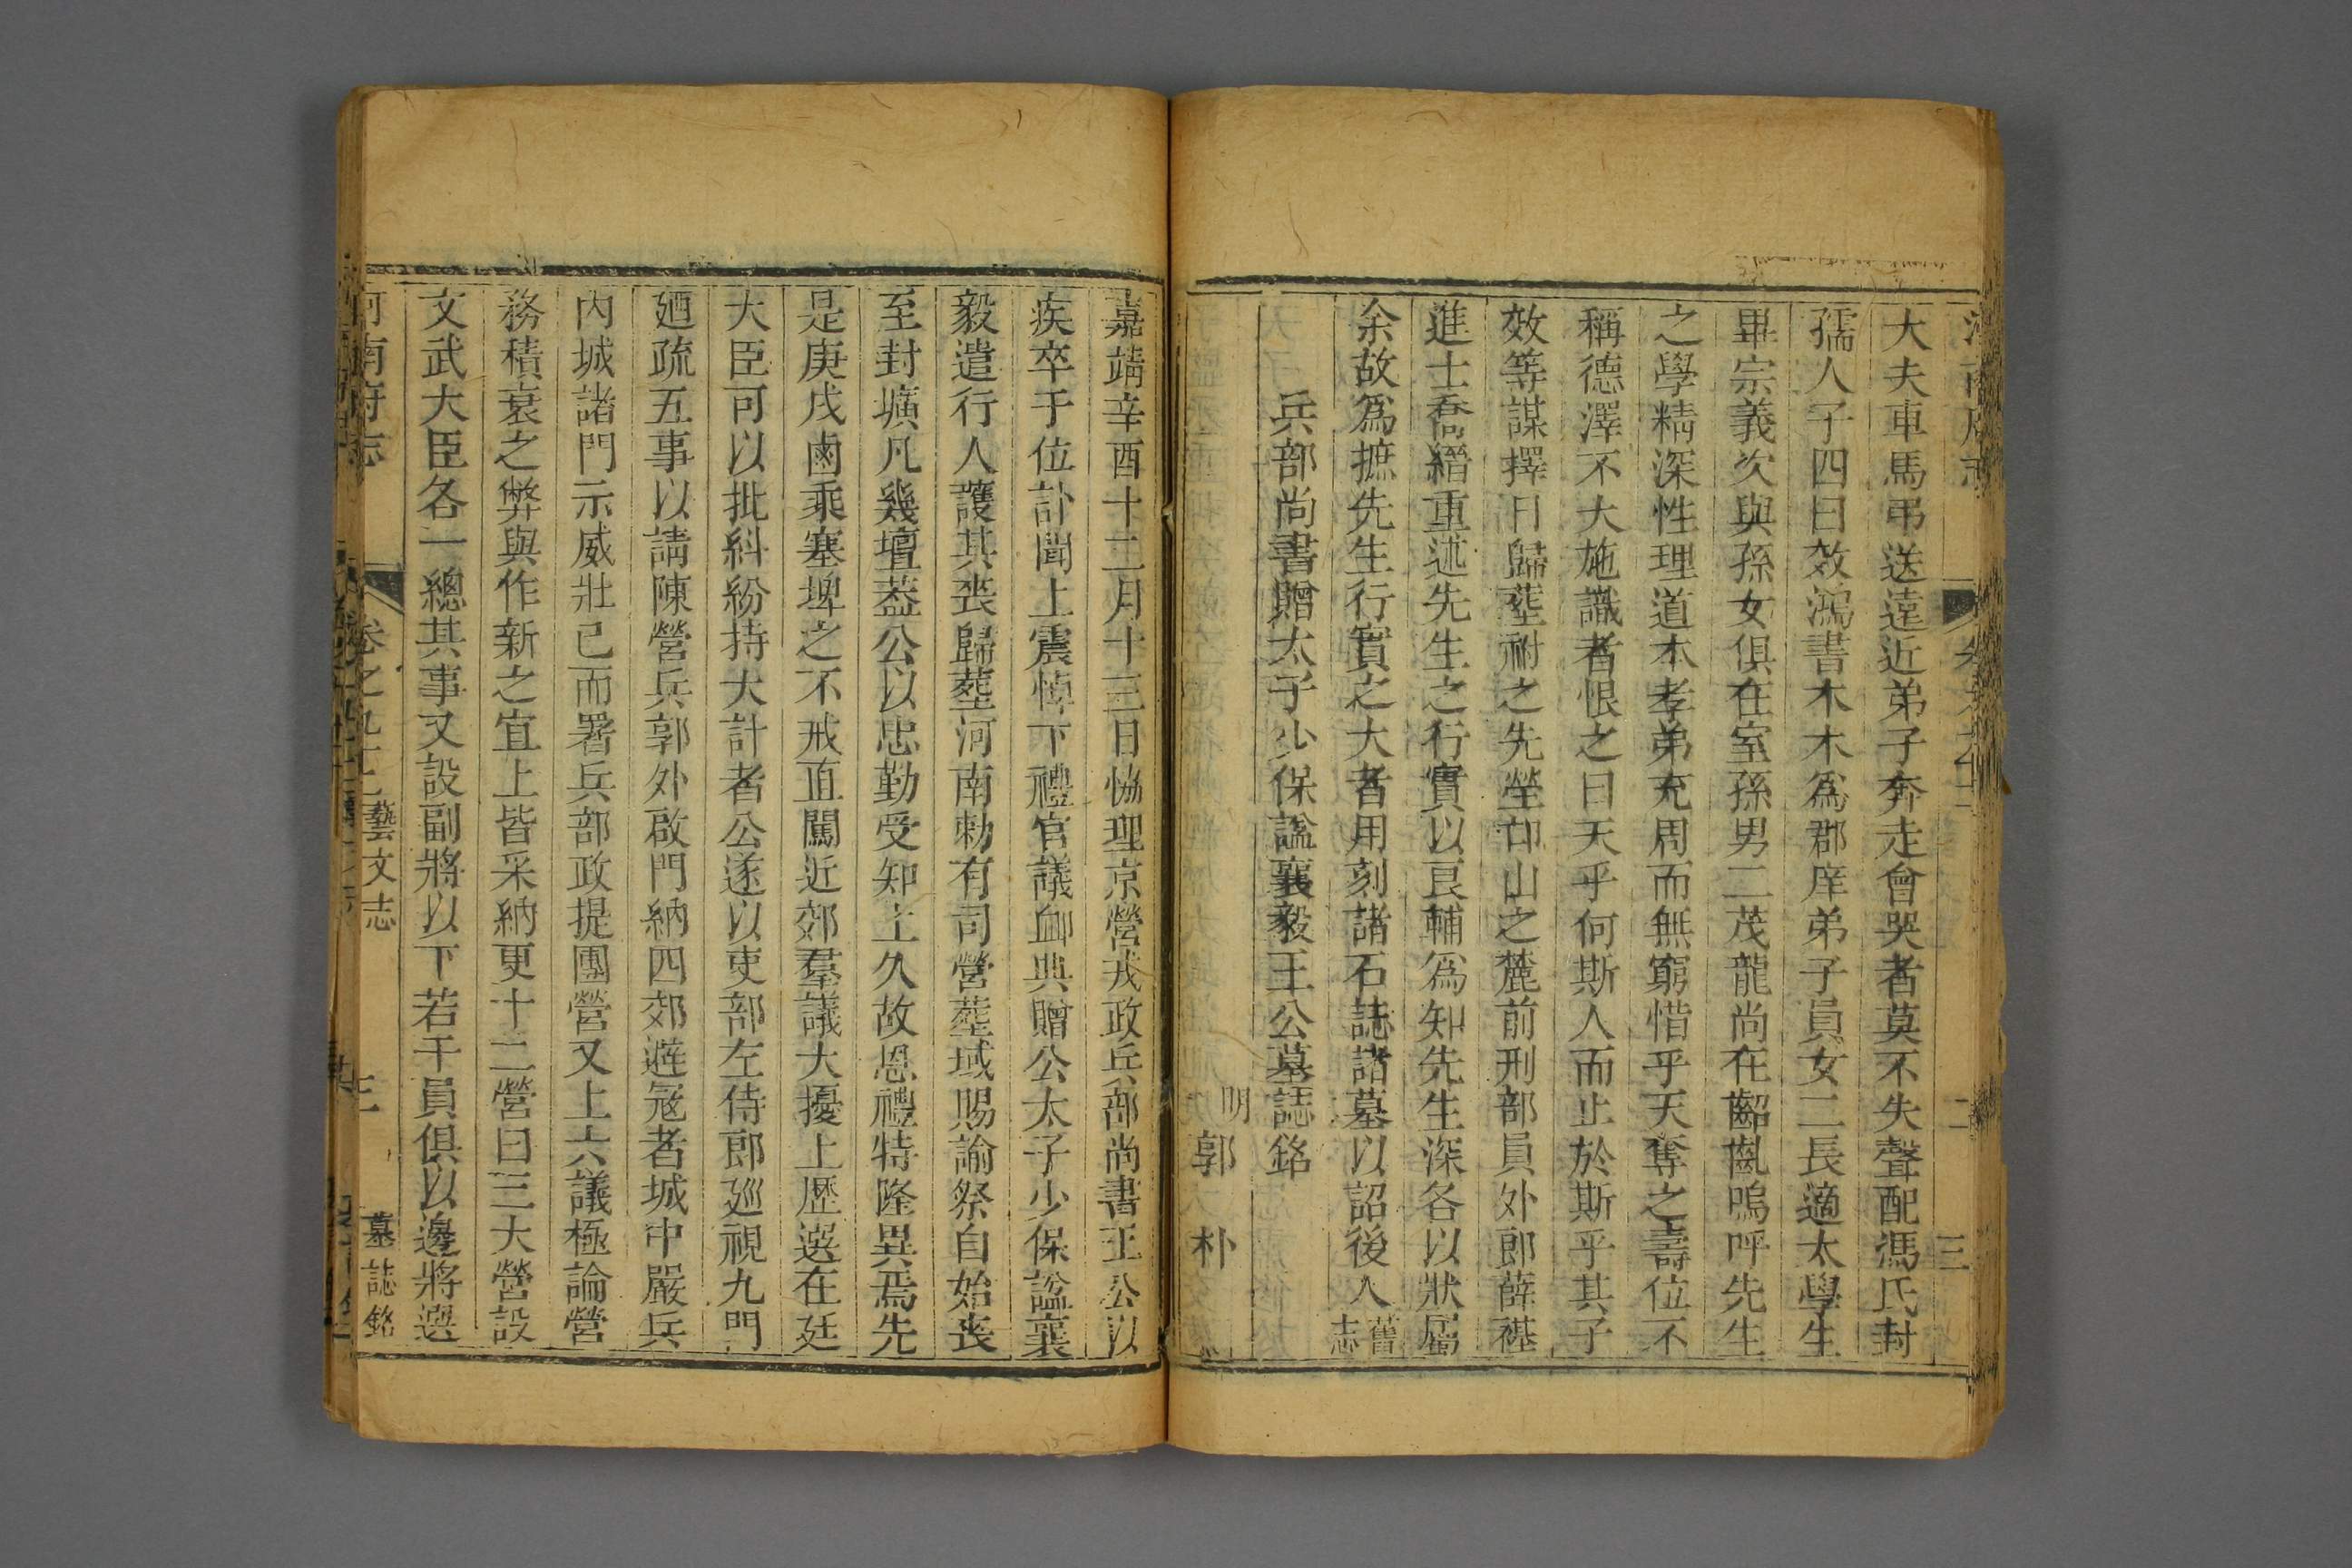 大夫車馬弔送遠近弟子奔走會哭者莫不失聲配馮氏封
孺人子四曰效鴻書木木爲郡庠弟子員女二長適太學生
畢宗義次與孫女俱在室孫男二茂龍尚在齠齓嗚呼先生
之學精深性理道本孝弟充周而無窮惜乎天奪之壽位不
稱德澤不大施識者恨之曰天乎何斯人而止於斯乎其子
效等謀擇日歸塟祔之先塋邙山之麓前刑部員外郎薛𥛚
進士喬縉重述先生之行實以良輔爲知先生深各以狀屬
余故爲摭先生行實之大者用刻諸石誌諸墓以詔後人舊志
兵部尚書贈太子少保諡襄毅王公墓誌銘
明郭朴
嘉靖辛酉十二月十三日恊理京營戎政兵部尚書王公以
疾卒于位訃聞上震悼下禮官議卹典贈公太子少保諡襄
毅遣行人護其喪歸塟河南勅有司營塟域賜諭祭自始喪
至封壙凡幾壇葢公以忠勤受知上久故恩禮特隆異焉先
是庚戌鹵乘塞埤之不戒直闖近郊羣議大擾上歷選在廷
大臣可以批糾紛持大計者公遂以吏部左侍郎廵視九門
廼疏五事以請陳營兵郭外啟門納四郊避冦者城中嚴兵
內城諸門示威壯已而署兵部政提團營又上六議極論營
務積衰之弊與作新之宜上皆采納更十二營曰三大營設
文武大臣各一總其事又設副將以下若干員俱以邊將選
河南府志 卷之九十二 藝文志 三 墓誌銘